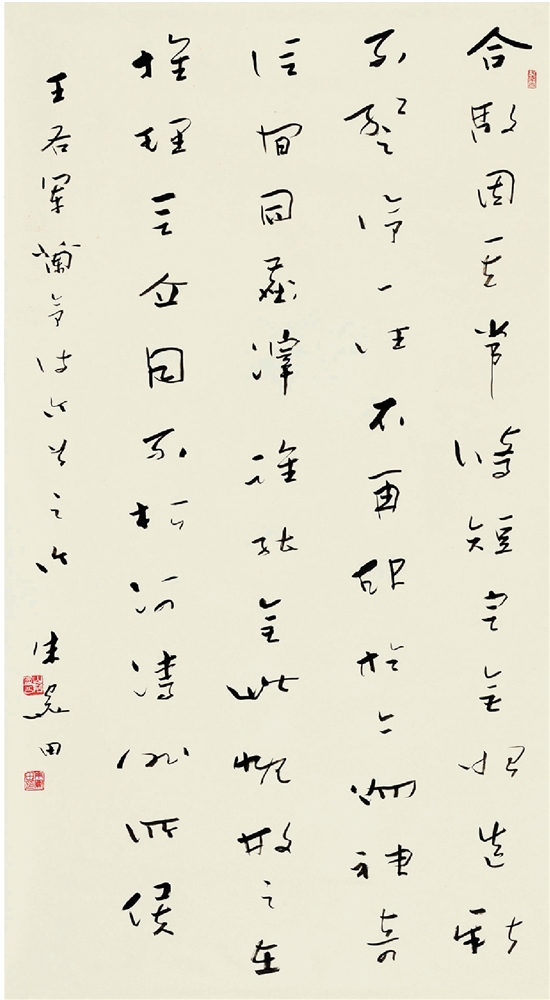 合散固其常脩短定無始造新
不暫停一往不再起於今為神奇
信宿同塵滓誰能無此慨散之在
推理言立同不朽河清非所俟
王右軍蘭亭詩六首之六 朱關田